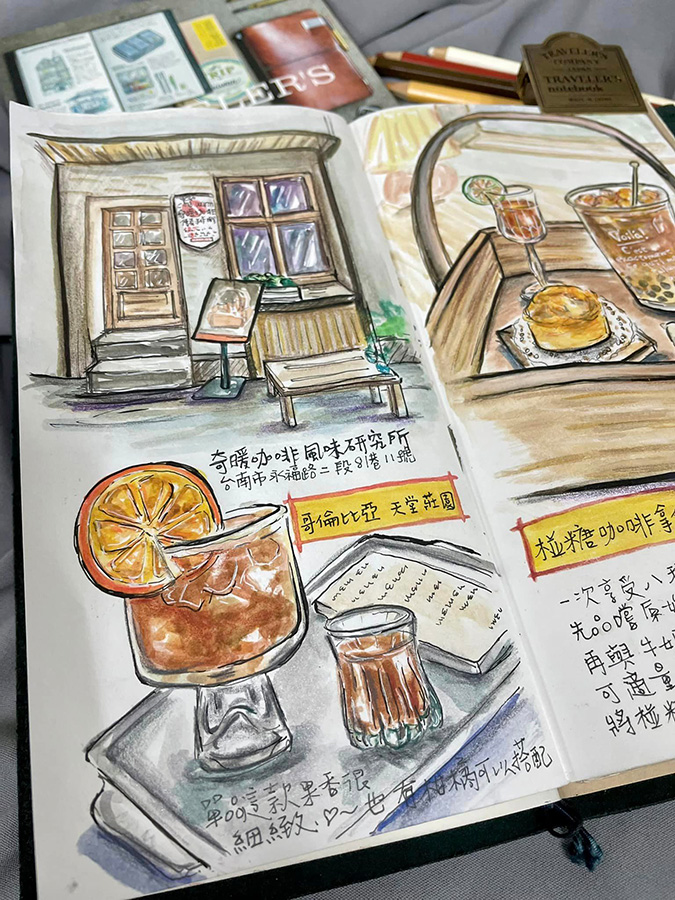 LER'S
TRAVELER'S
COMPANY
TRAVELER'S
notebook
奇暖咖啡風味研究所
台南市永福路二段81巷11號
哥倫比亞 天堂莊園
單品這款果香很
細緻.♡~也有柑橘可以搭配
椪糖咖啡拿
一次享受八
先品嚐原
再與牛奶
可適量
將椪糖